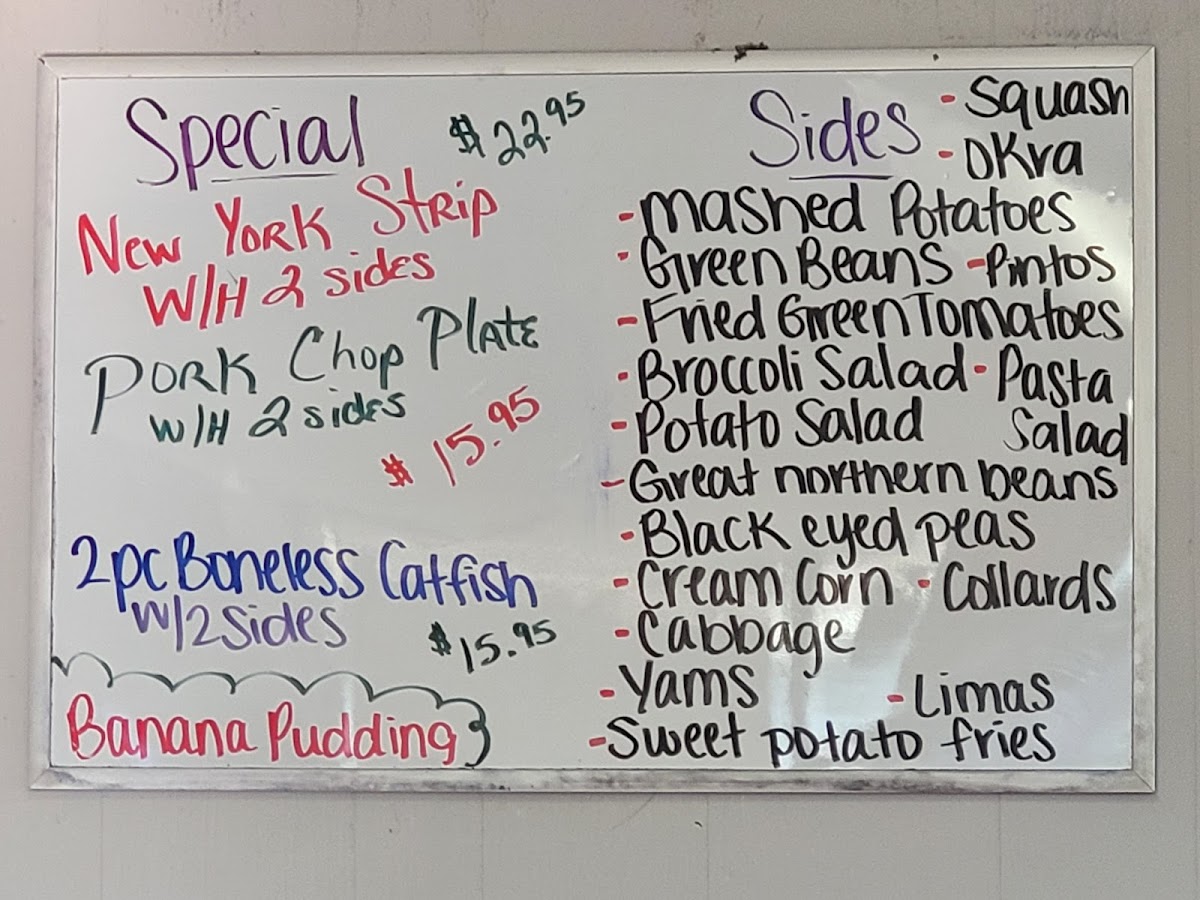 Special $22.95
New York Strip
W/H 2 sides
Pork Chop Plate
W/H 2 sides
$15.95
2pc Boneless Catfish
W/2 Sides
$15.95
Banana Pudding
Sides
- Squash
- Okra
- Mashed Potatoes
- Green Beans - Pintos
- Fried Green Tomatoes
- Broccoli Salad - Pasta Salad
- Potato Salad
- Great northern beans
- Black eyed peas
- Cream Corn - Collards
- Cabbage
- Yams - Limas
- Sweet potato fries